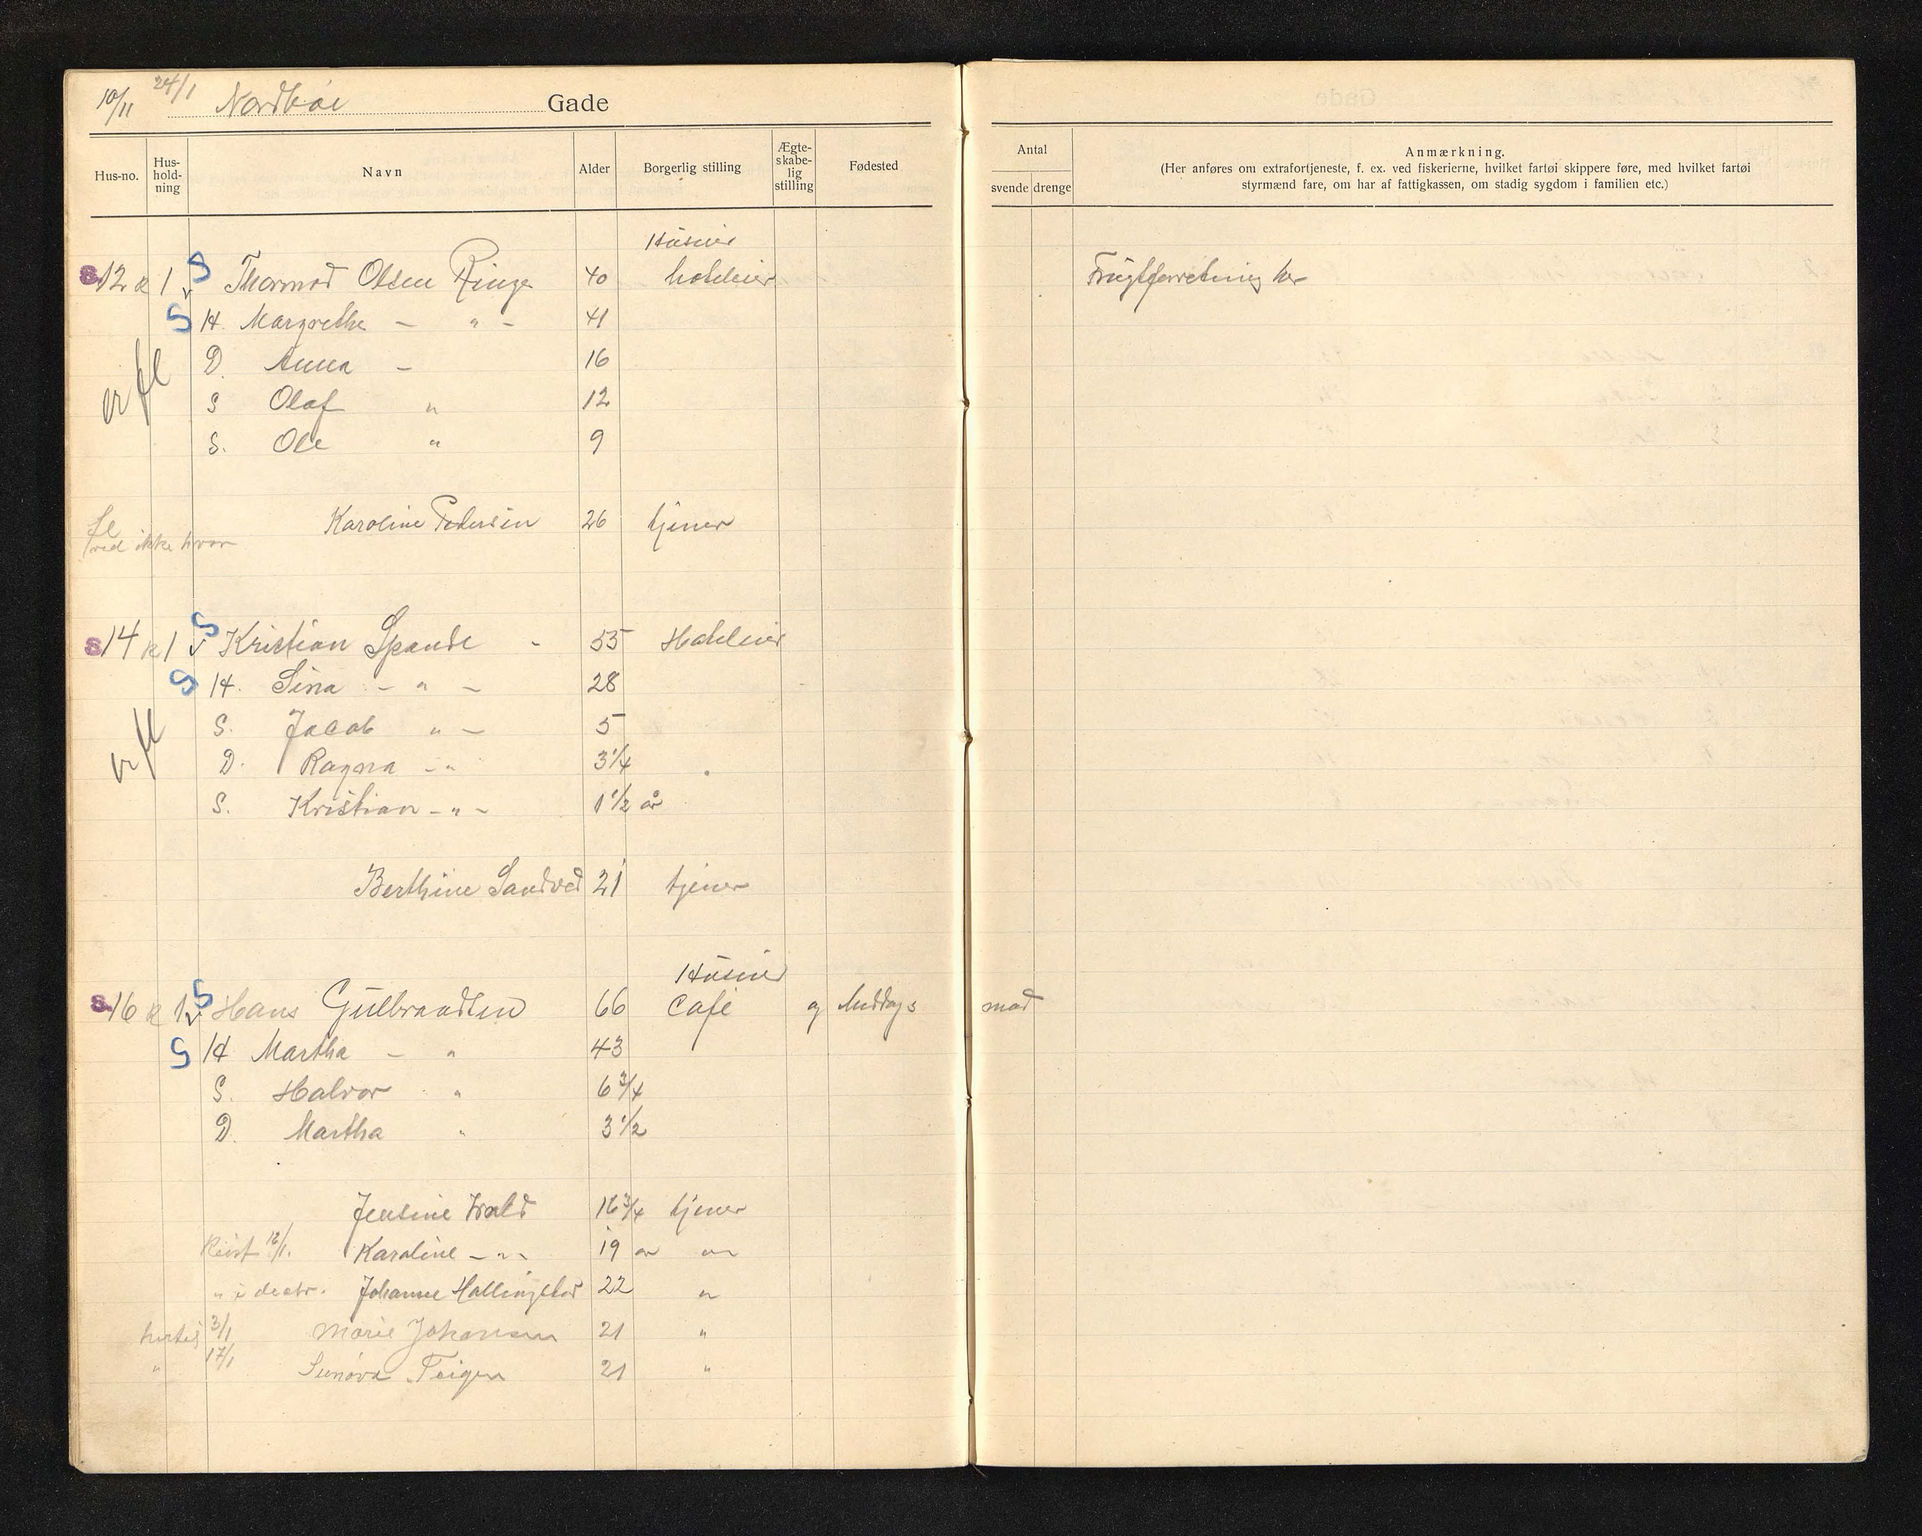 10/11 24/1 Nordbøe Gade
Hus-no. Hus-hold-ning Navn Alder Borgerlig stilling Ægte-skabe-lig stilling Fødested Antal svende drenge
Anmærkning.
(Her anføres om extrafortjeneste, f. ex. ved fiskerierne, hvilket fartøi skippere føre, med hvilket fartøi
styrmænd fare, om har af fattigkassen, om stadig sygdom i familien etc.)
Huseier
S 12 k 1 S Thormod Olsen Ringe 40 hoteleier Frugtforretning her
S H. Margrethe — " — 41
D. Anna — 16
S Olaf " 12
S. Ole " 9
Karoline Pedersen 26 tjener
fl ved ikke hvor
S 14 k 1 S Kristian Spande - 55 Hoteleier
S H. Sina — " — 28
S. Jacob " — 5
D. Ragna — " 3 1/4
S. Kristian — " — 1 1/2 år
Berthine Sandved 21 tjener
Huseier
S 16 k 1 S Hans Gulbrandsen 66 Cafe og Middags mad
S H Martha — " 43
S. Halvor " 6 3/4
D. Martha " 3 1/2
Jensine 16 3/4 tjener
Reist 12/1. Karoline — " - 19 år "
" i decbr. Johanne 22 "
3/1 Marie Johansen 21 "
" 17/1 Sunøva Teigen 21 "